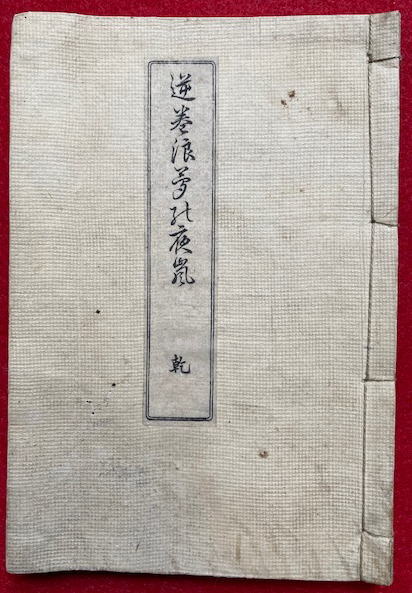 逆巻浪夢の夜嵐
乾